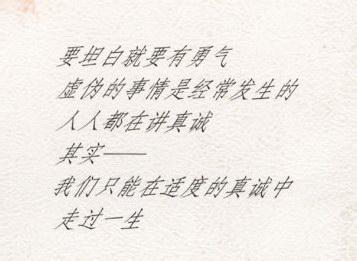 要坦白就要有勇气
虚伪的事情是经常发生的
人人都在讲真诚
其实——
我们只能在适度的真诚中
走过一生